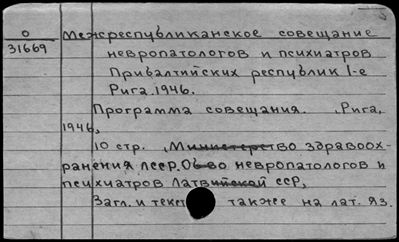 О
31669
Межреспубликанское совещание
невропатологов и психиатров
Прибалтийских республик 1-е
Рига, 1946.
Программа совещания. Рига,
1946,
10 стр. Министерство здравоох-
ранения ЛССР. Об-во невропатологов и
психиатров Латвийской ССР,
Загл. и текст также на лат. яз.